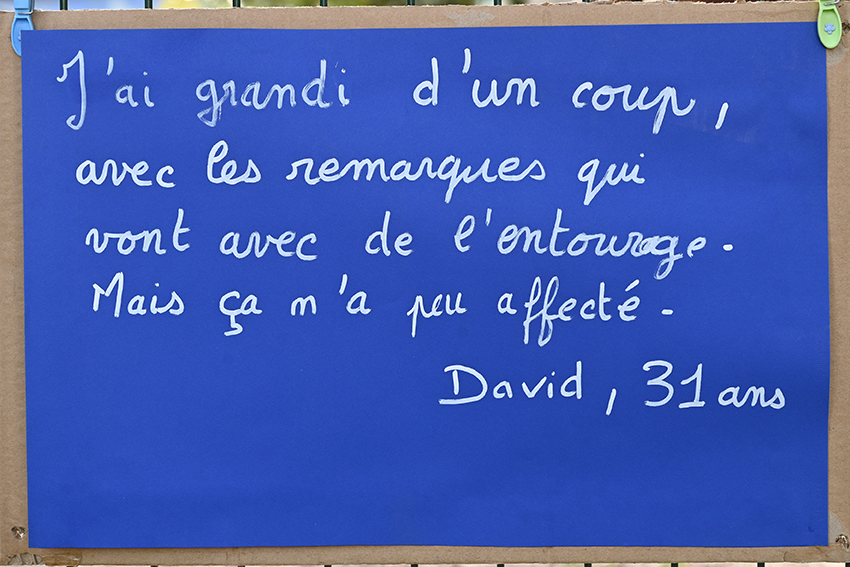 J'ai grandi d'un coup,
avec les remarques qui
vont avec de l'entourage.
Mais ça m'a peu affecté.
David, 31 ans